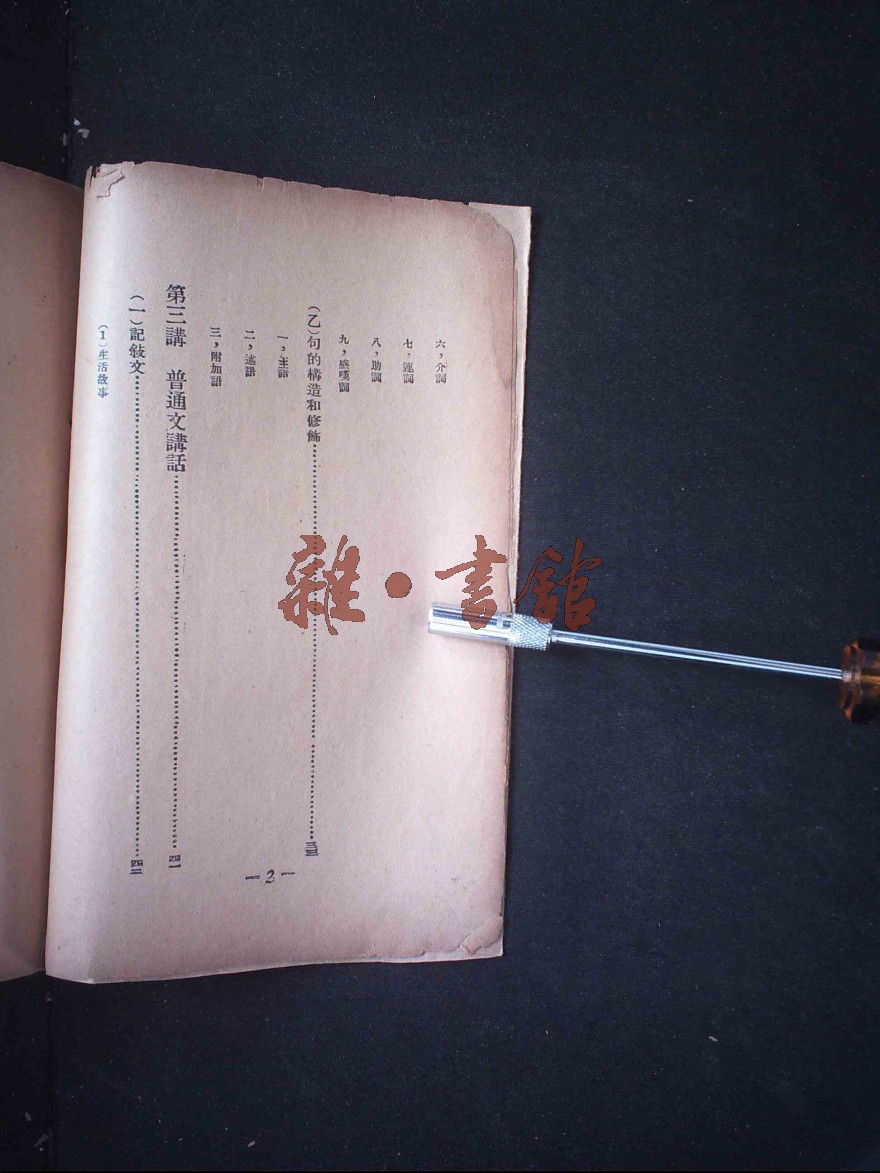 六，介詞
七，連詞
八，助詞
九，感嘆詞
(乙)句的構造和修飾
一，主語
二，述語
三，附加語
第三講　普通文講話……四一
(一)記敍文……四二
(1)生活故事
—2—
雜·書館